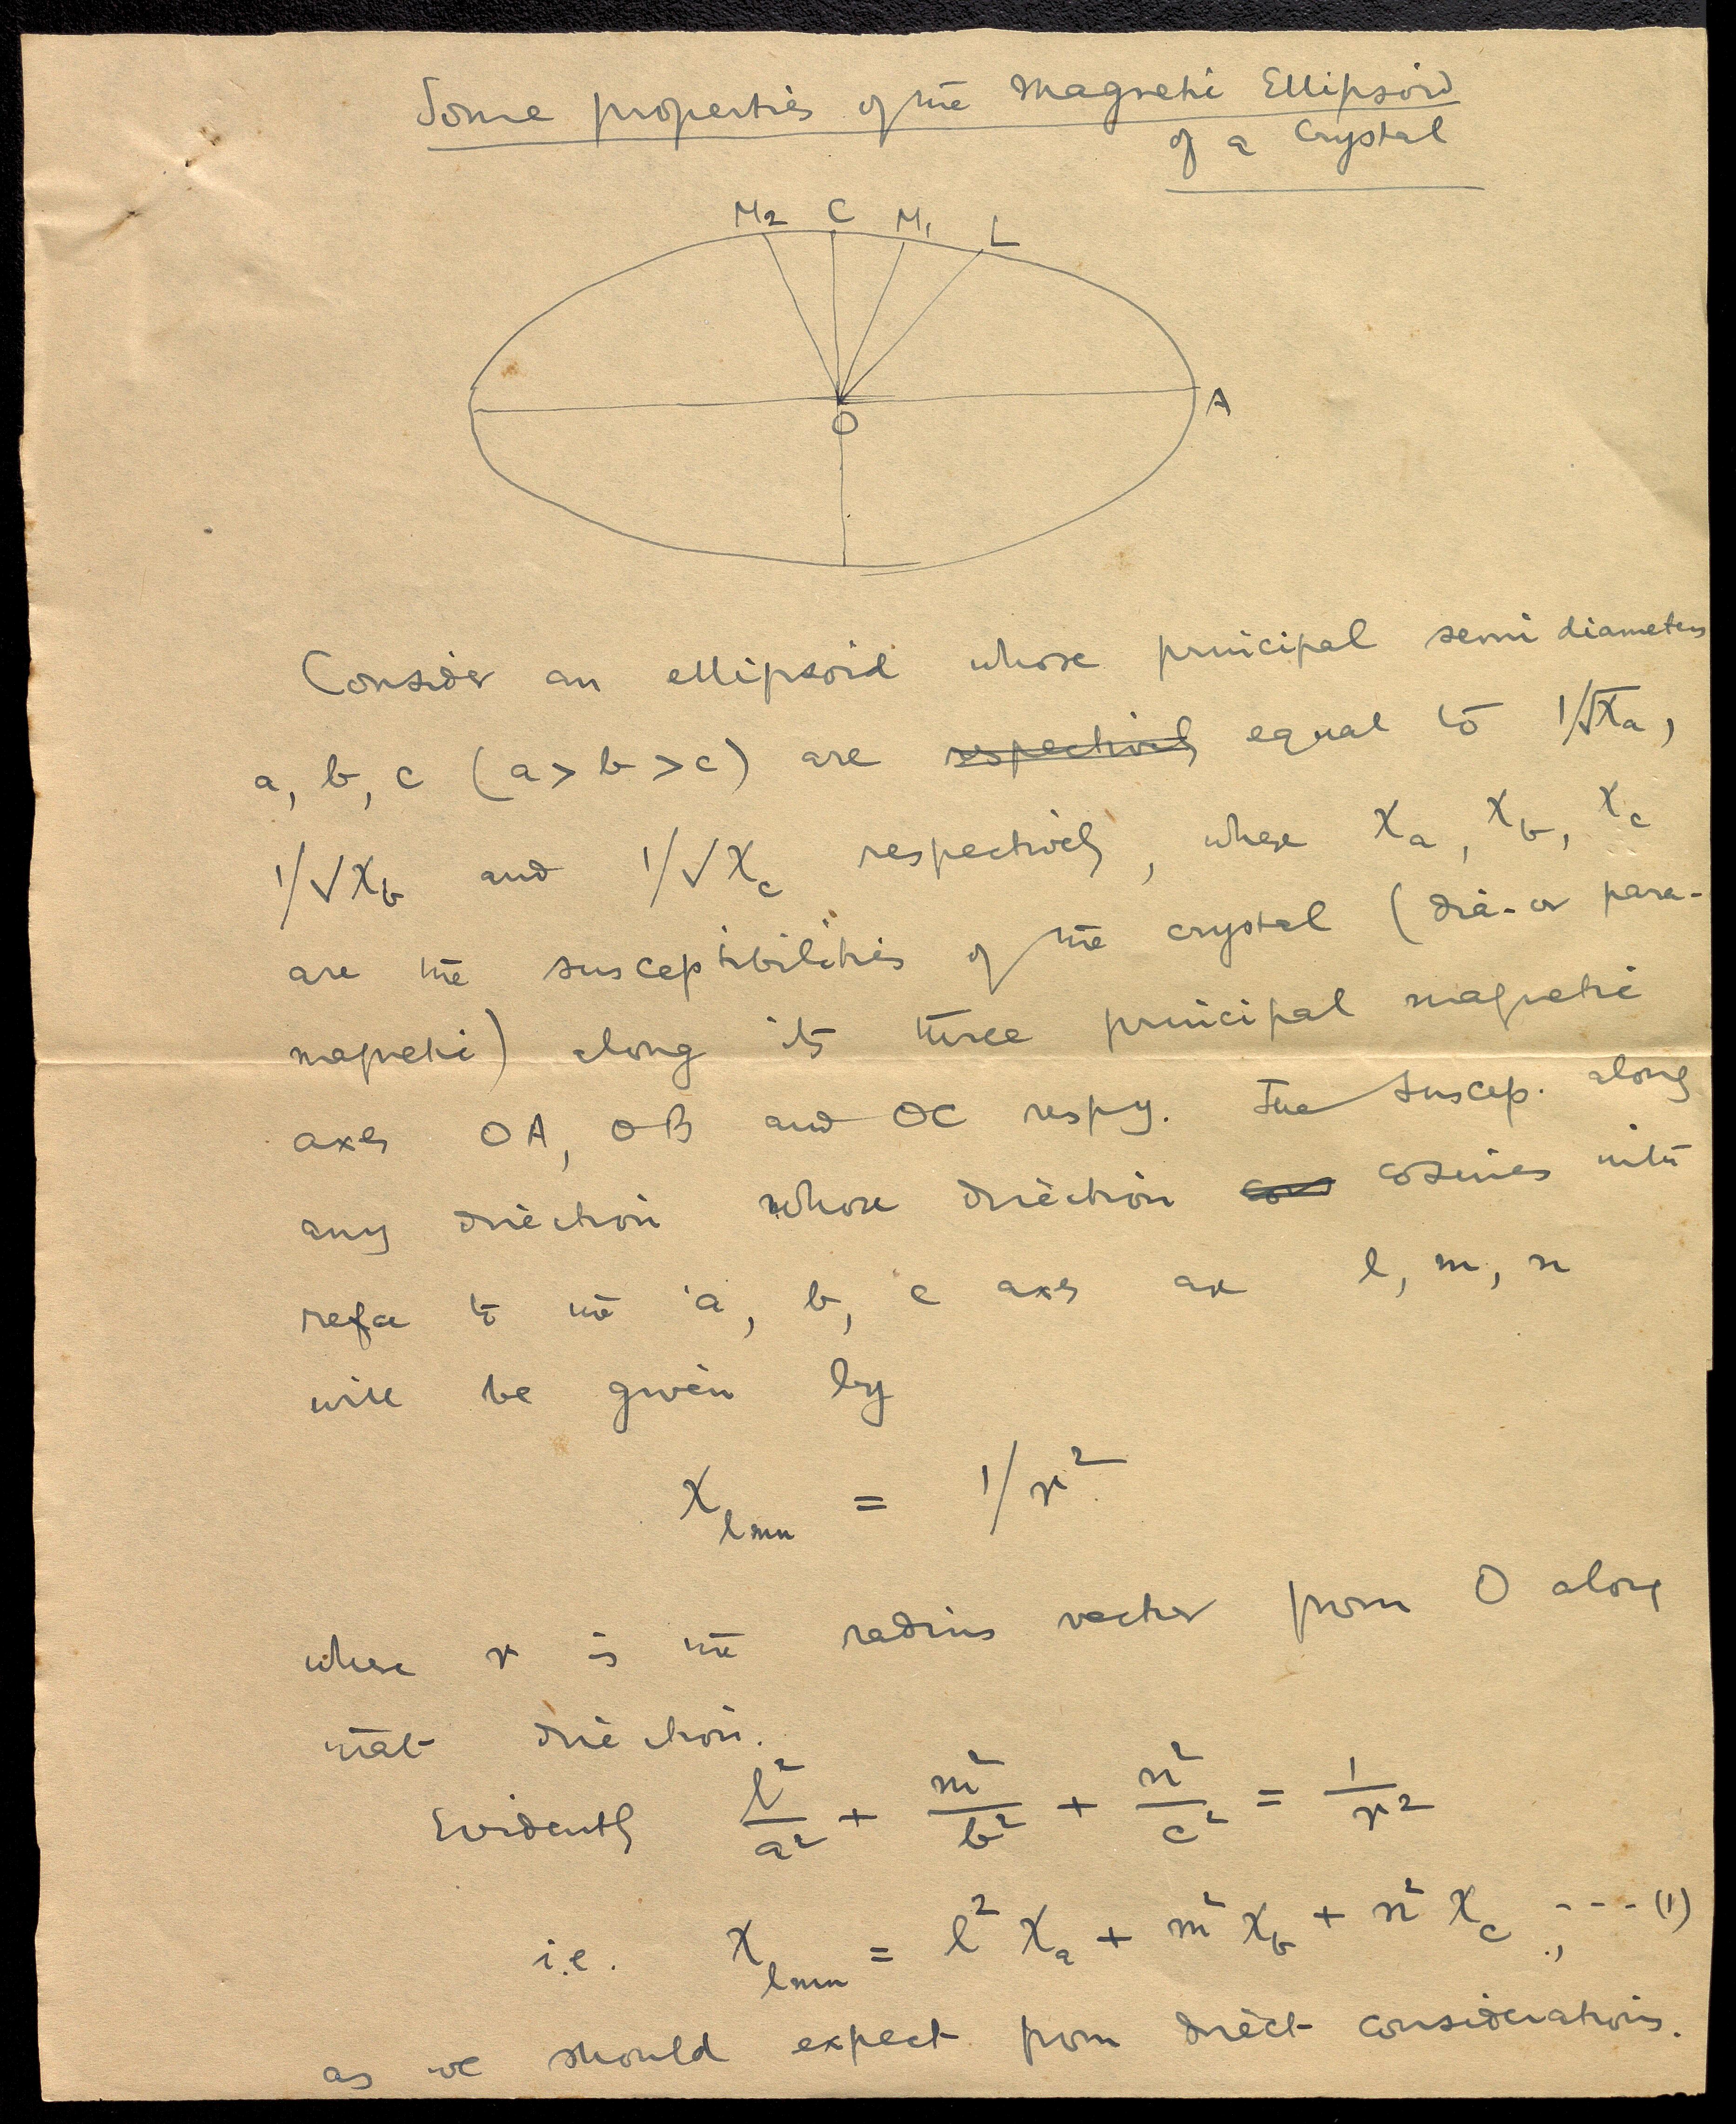 Some properties of the Magnetic Ellipsoid
of a Crystal
M₂ C M₁ L
A
O
Consider an ellipsoid whose principal semi diameters
a, b, c (a > b > c) are respectively equal to 1/√χa,
1/√χb and 1/√χc respectively, where χa, χb, χc
are the susceptibilities of the crystal (dia- or para-
magnetic) along its three principal magnetic
axes OA, OB and OC respy. The suscep. along
any direction whose direction cosines with
refce to the a, b, c axes are l, m, n
will be given by
χlmn = 1/r²
where r is the radius vector from O along
that direction.
Evidently l²/a² + m²/b² + n²/c² = 1/r²
i.e. χlmn = l² χa + m² χb + n² χc, --- (1)
as we should expect from direct considerations.